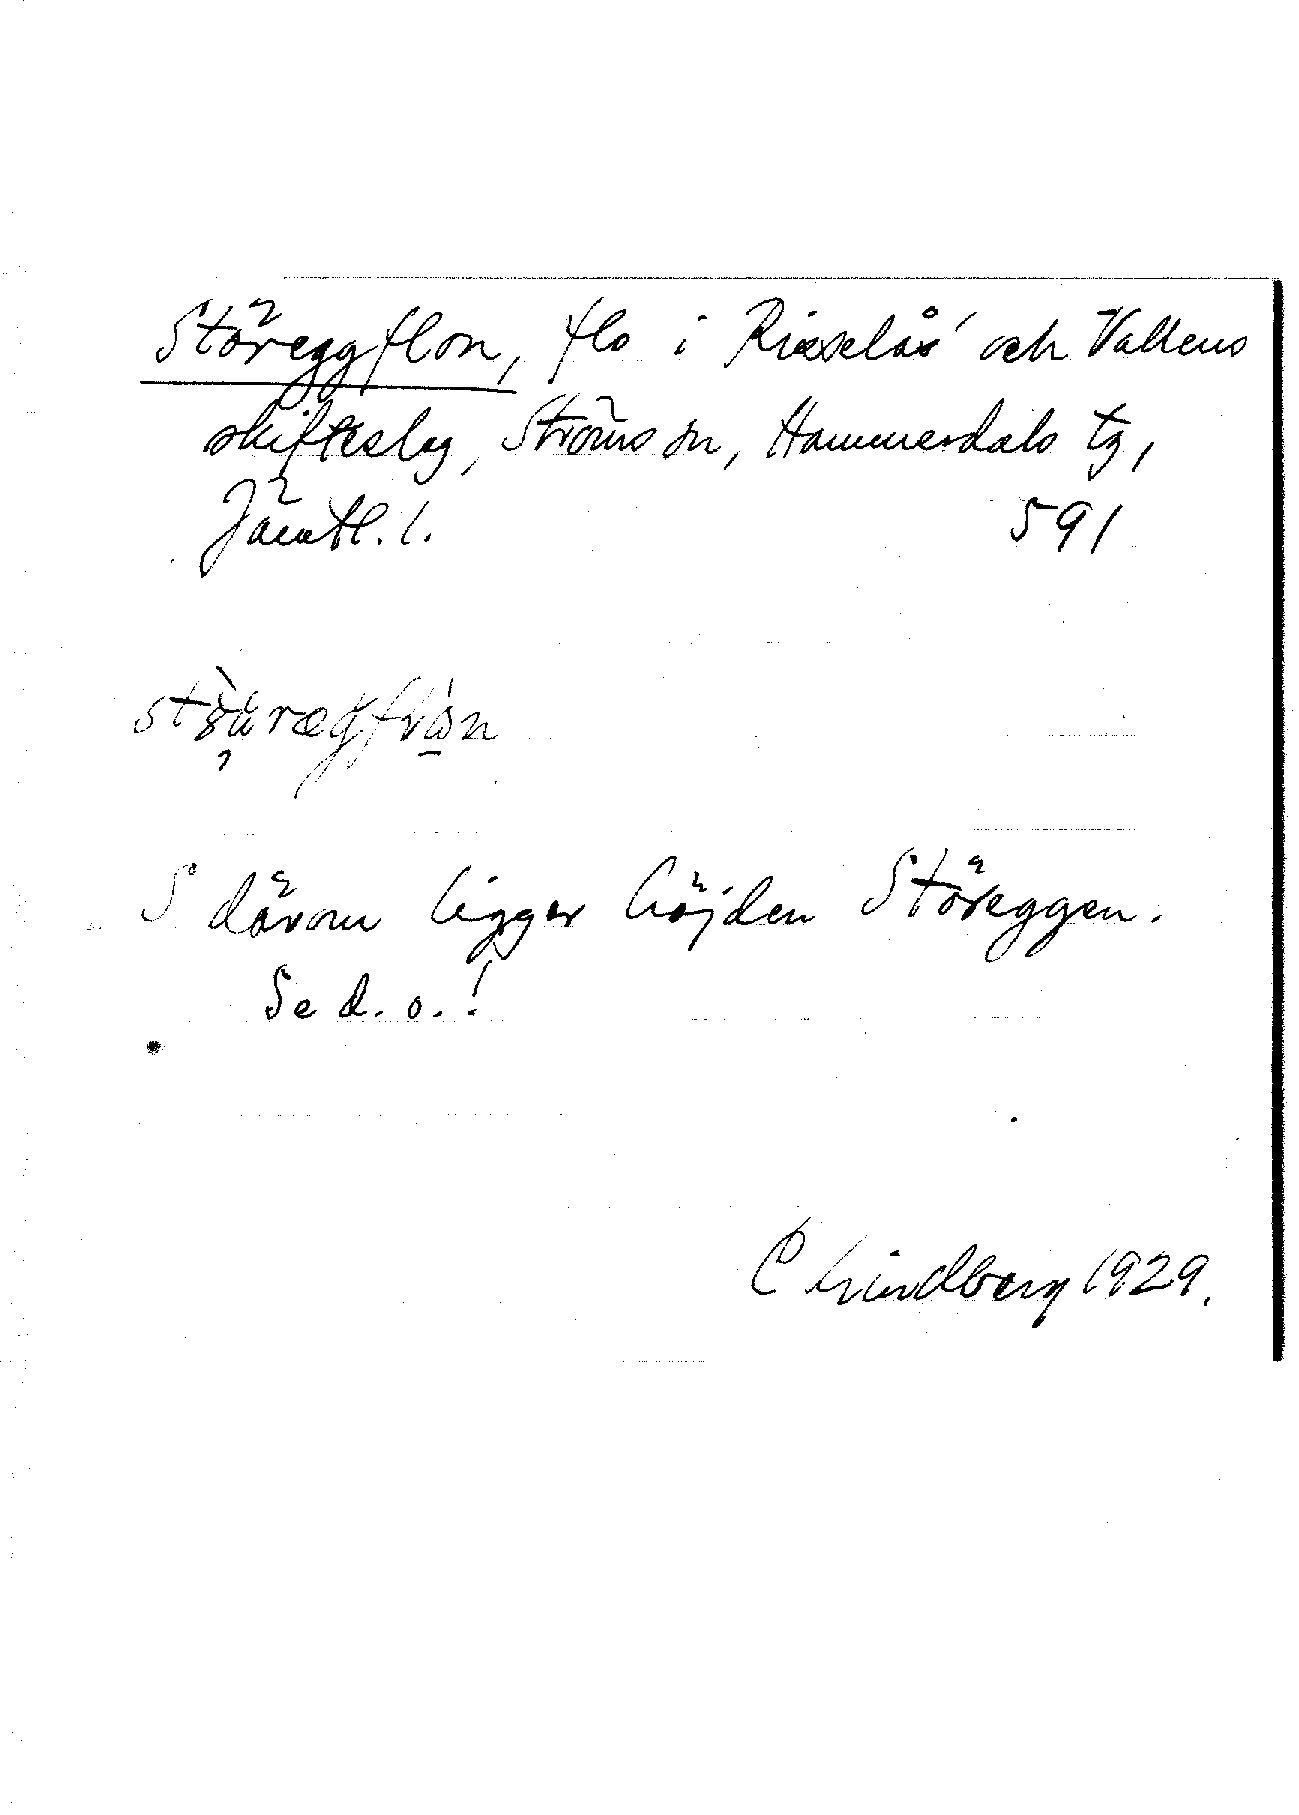 Störeggflon, flo i Risselås' och Vallens
skifteslag, Ströms sn, Hammerdals tg,
Jämtl. l. 591
S därom ligger höjden Störeggen.
Se d. o.!
C Lindberg 1929.